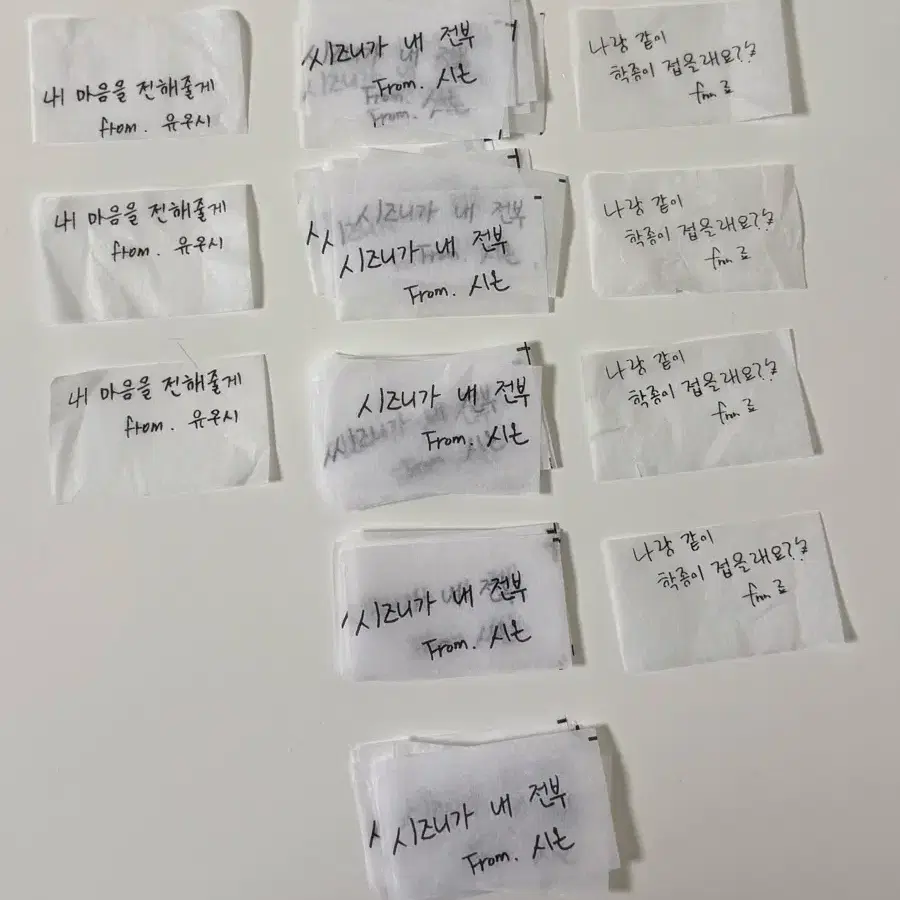 내 마음을 전해줄게
from. 유우시
내 마음을 전해줄게
from. 유우시
내 마음을 전해줄게
from. 유우시
시즈니가 내 전부
From. 시온
From. 시온
시즈니가 내 전부
시즈니가 내 전부
From. 시온
시즈니가 내 전부
From. 시온
시즈니가 내 전부
From. 시온
시즈니가 내 전부
From. 시온
나랑 같이
학종이 접을래요??
from 료
나랑 같이
학종이 접을래요??
from 료
나랑 같이
학종이 접을래요??
from 료
나랑 같이
학종이 접을래요??
from 료